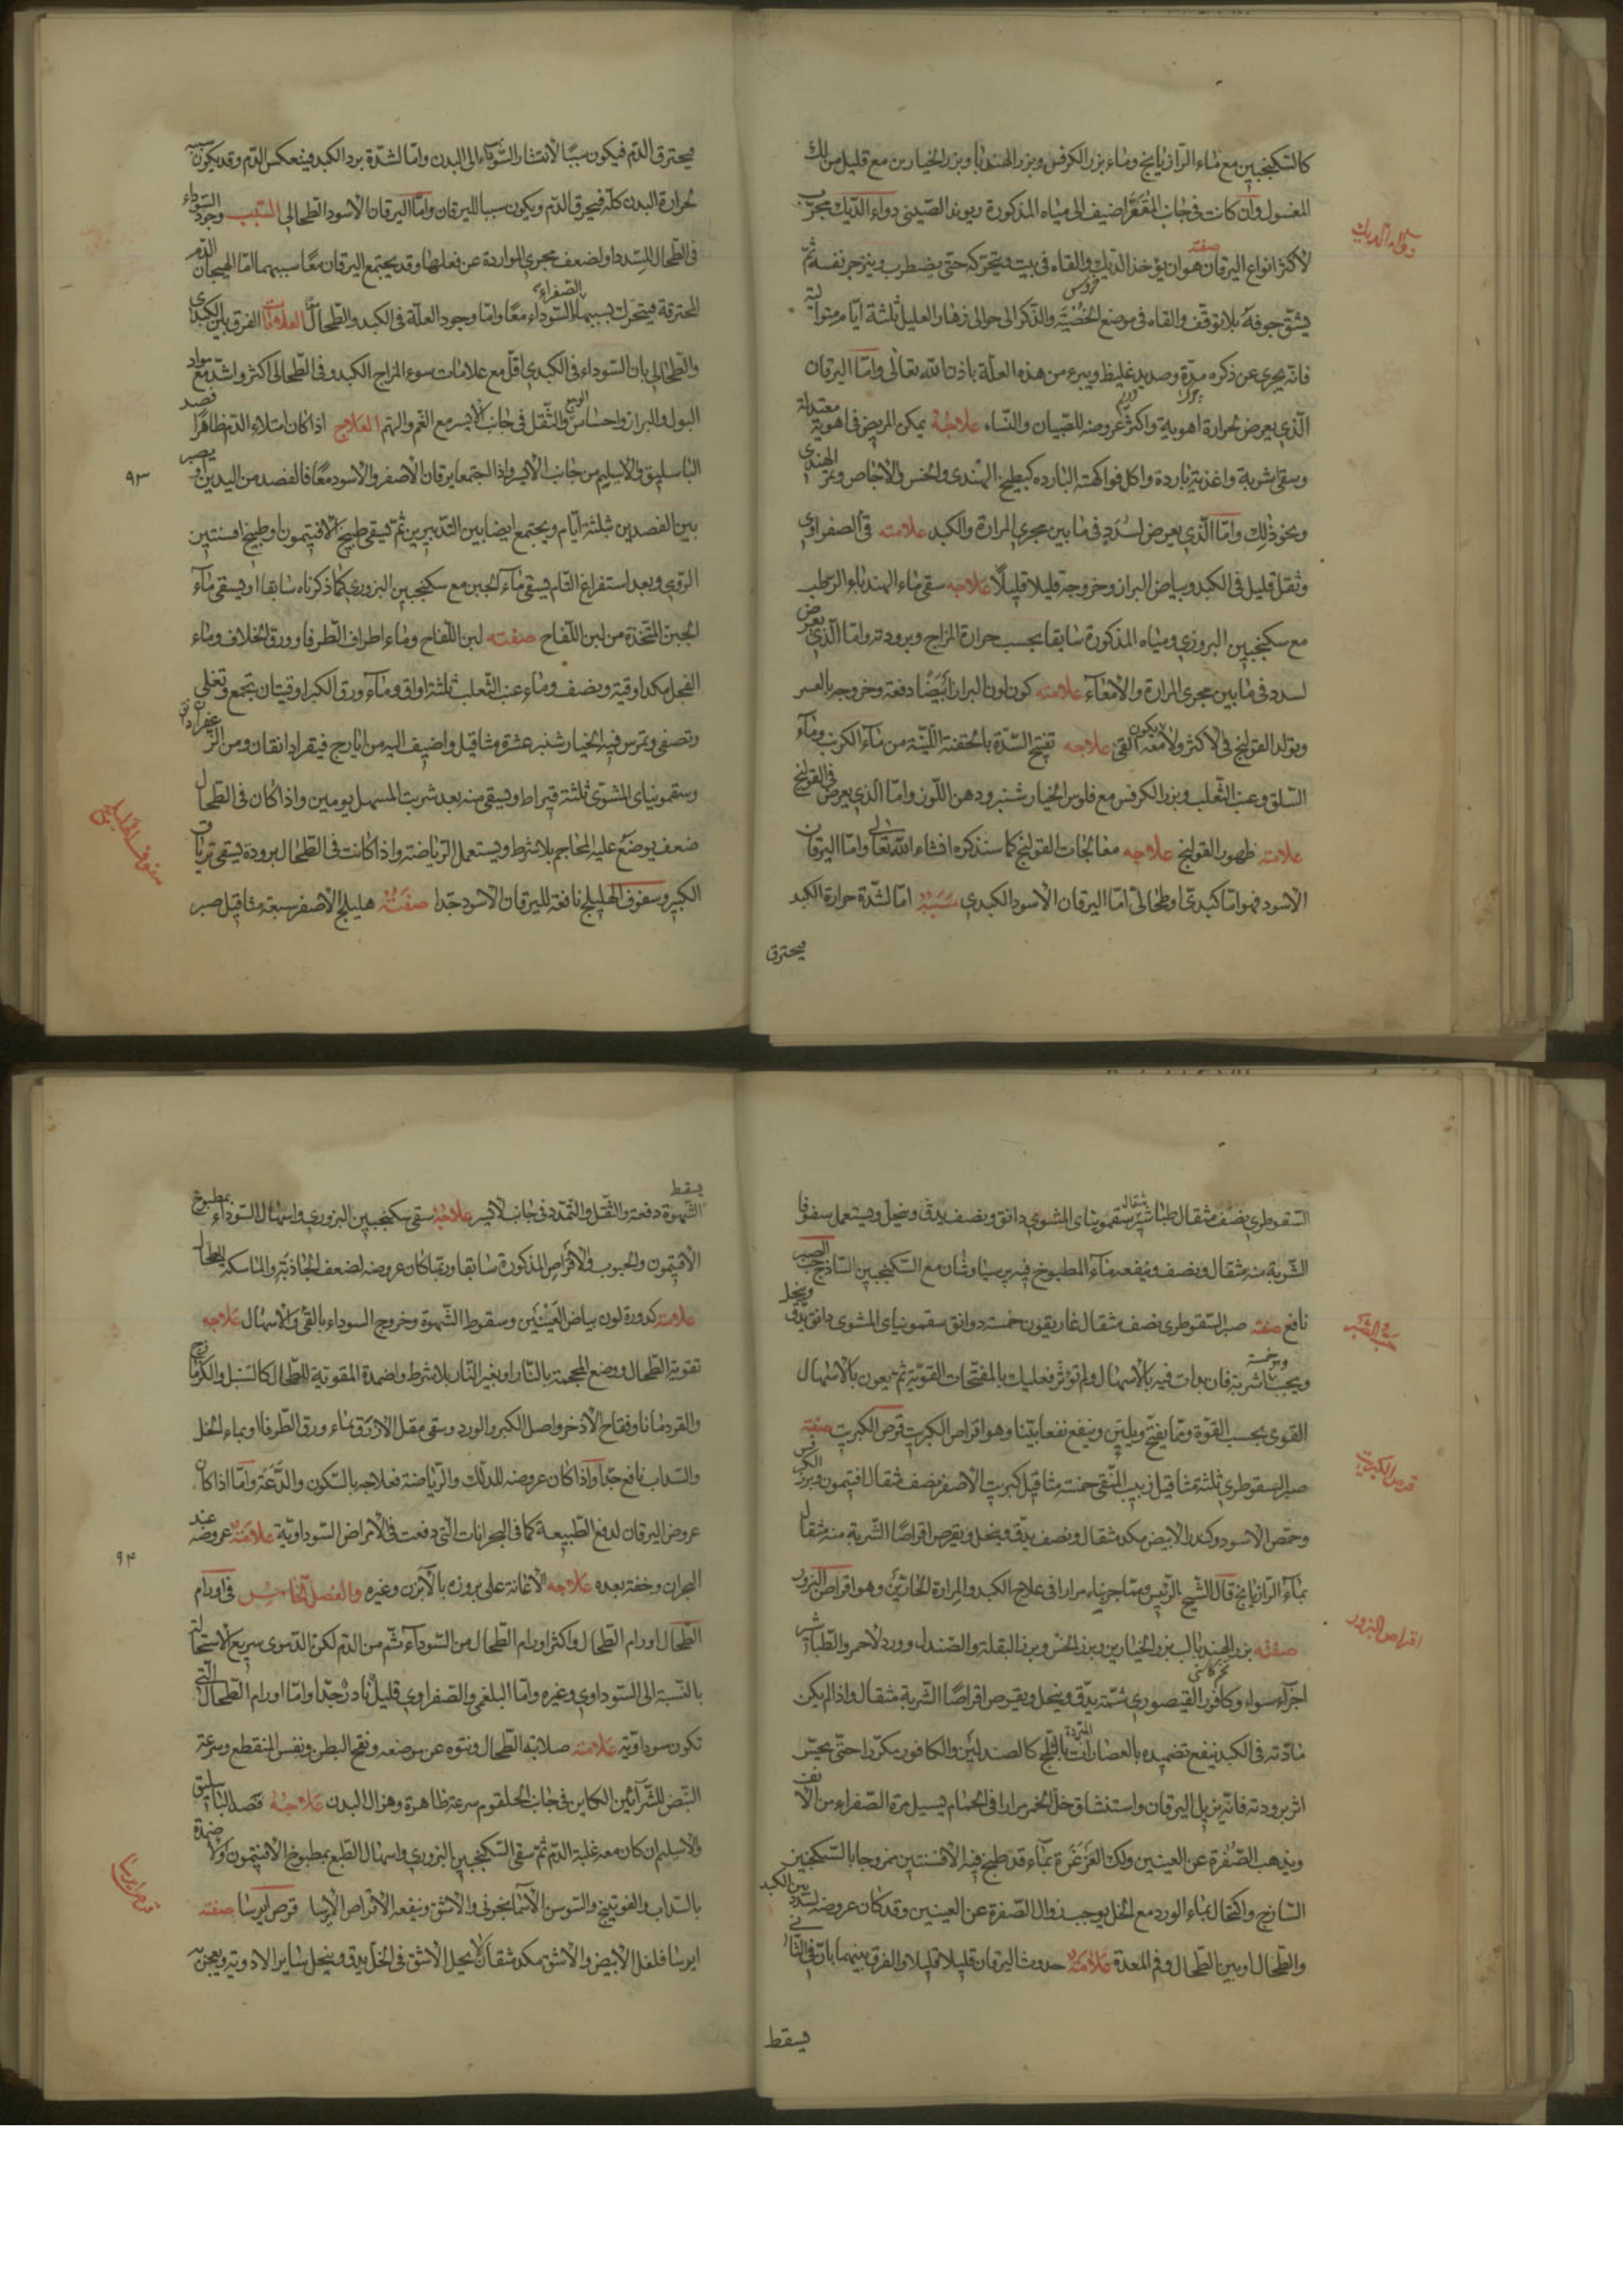 كالسكنجبين مع ماء الرازيانج وماء بزر الكرفس وبزر الهندبا وبزر الخيارين مع قليل من لك
المغسول وان كانت فى جانب المقعر اضيف الى مياه المذكورة ريوند الصينى دواء الديك مجرب
دواء الديك
لاكثر انواع اليرقان صفته هو ان يؤخذ الديك والقاه فى بيت ويتحركه حتى يضطرب وينزجر نفسه ثم
يشق جوفه بلا توقف والقاه فى موضع الخصية والذكر الى حوالى زهار العليل ثلثة ايام متوالية
فانه يجرى عن ذكره مدة وصديد غليظ ويبرء من هذه العلة باذن الله تعالى واما اليرقان
الذى يعرض لحرارة اهوية واكثر عروضه للصبيان والنساء علاجه يمكن المريض فى اهوية معتدلة
وسقى اشربة واغذية باردة واكل فواكهته البارده كبطيخ الهندى والخس والاجاص وتمر الهندى
ونحو ذلك واما الذى يعرض لسدد فى ما بين مجرى المرارة والكبد علامته قئ الصفراوى
وثقل قليل فى الكبد وبياض البراز وخروجه قليلا قليلا علاجه سقى ماء الهندباء الرطب
مع سكنجبين البزورى ومياه المذكورة سابقا بحسب حرارة المزاج وبرودته واما الذى يعرض
لسدد فى ما بين مجرى المرارة والامعاء علامته كون لون البراز ابيضا دفعة وخروجه بالعسر
وتولد القولنج فى الاكثر ولا يكون معه القئ علاجه تفتح السدة بالحقنة اللينة من ماء الكرنب وماء
السلق وعنب الثعلب وبزر الكرفس مع فلوس الخيارشنبر ودهن اللوز واما الذى يعرض فى القولنج
علامته ظهور القولنج علاجه معالجات القولنج كما سنذكره انشاء الله تعالى واما اليرقان
الاسود فهو اما كبدى او طحالى اما اليرقان الاسود الكبدى سببه اما لشدة حرارة الكبد
فيحترق
فيحترق الدم فيكون سببا لانتشار السوداء الى البدن واما لشدة برد الكبد فينعكس الدم وقد يكون سببه
لحرارة البدن كله فيحرق الدم ويكون سببا لليرقان واما اليرقان الاسود الطحالى السبب وجود السوداء
فى الطحال لسدد او لضعف مجرى الواردة عن فعلها وقد يجتمع اليرقان معا سببهما اما لهيجان الدم
المحترقة فيتحرك بسببها الصفراء والسوداء معا واما وجود العلة فى الكبد والطحال معا العلامات الفرق بين الكبدى
والطحالى بان السوداء فى الكبدى اقل مع علامات سوء المزاج الكبد وفى الطحالى اكثر واشد مع سواد
البول والبراز واحساس الوجع والثقل فى جانب الايسر مع الغم والهم العلاج اذا كان امتلاء الدم ظاهرا فصد
الباسليق والاسيلم من جانب الايسر واذا اجتمعا يرقان الاصفر والاسود معا فالفصد من اليدين ويصبر
٩٣
بين الفصدين ثلثة ايام ويجتمع ايضا بين التدبيرين ثم يسقى طبيخ الافتيمون او طبيخ افسنتين
الرومى وبعد استفراغ التام يسقى ماء الجبن مع سكنجبين البزورى كما ذكرناه سابقا او يسقى ماء
الجبن المتخذة من لبن اللقاح صفته لبن اللقاح وماء اطراف الطرفا وورق الخلاف وماء
الفجل مكد اوقية ونصف وماء عنب الثعلب ثلثة اواق وماء ورق الكبر اوقيتان تجمع وتغلى
وتصفى وتمرس فيه الخيار شنبر عشرة مثاقيل واضيف اليه من ايارج فيقرا دانقان ومن الزعفران دانق
وسقمونياى المشوى ثلثة قيراط ويسقى منه بعد شربت المسهل يومين واذا كان فى الطحال
ضعف يوضع عليه المحاجم بلا شرط ويستعمل الرياضة واذا كانت فى الطحال برودة يسقى ترياق
سفوف الهليلج
الكبير وسفوف الهليلج نافعة لليرقان الاسود جدا صفته هليلج الاصفر سبعة مثاقيل صبر
السقوطرى نصف مثقال طباشير مثقال سقمونياى المشوى دانق ونصف يدق وينخل ويستعمل سفوفا
الشربة منه مثقال ونصف ويدفعه بماء المطبوخ فيه برسياوشان مع السكنجبين الساذج حب الصبر
نافع صفته صبر السقوطرى نصف مثقال غاريقون خمسة دوانق سقمونياى المشوى دانق يدق وينخل
حب الصبر
ويحبب وهو خمسة اشربة فان بدات فيه بالاسهال ولم تؤثر فعليك بالمفتحات القوية ثم يعون بالاسهال
القوى بحسب القوة ومما يفتح ويلين وينفع نفعا بينا وهو اقراص الكبريت قرص الكبريت صفته
قرص الكبريت
صبر السقوطرى ثلثة مثاقيل زبيب المنقى خمسة مثاقيل كبريت الاصفر نصف مثقال افتيمون وبزر الكرفس
وحمص الاسود وكندر الابيض مكد مثقال ونصف يدق وينخل ويقرص اقراصا الشربة منه مثقال
بماء الرازيانج قال الشيخ الرئيس ومما جربناه مرارا فى علاج الكبد والمرارة الحارتين وهو اقراص البزور
اقراص البزور
صفته بزر الهندبا لب بزر الخيارين وبزر الخس وبزر البقلة والصندل وورد الاحمر والطباشير
اجزاء سواء وكافور القيصورى ثمنه يدق وينخل ويقرص اقراصا الشربة مثقال واذا لم يكن
مادته فى الكبد ينفع تضميده بالعصارات المبردة بالثلج كالصندلين والكافور مكررا حتى يحس
اثر برودته فانه يزيل اليرقان واستنشاق خل الخمر مرارا فى الحمام يسيل مرة الصفراء من الانف
ويذهب الصفرة عن العينين وكذلك الغرغرة بماء قد طبخ فيه الافسنتين ممزوجا بالسكنجبين
الساذج واكتحال بماء الورد مع الخل يوجب زوال الصفرة عن العينين وقد كان عروضه لسدد بين الكبد
والطحال او بين الطحال وفم المعدة علامته حدوث اليرقان قليلا قليلا والفرق بينهما بان فى الثانى
يسقط
يسقط
الشهوة دفعة والثقل والتمدد فى جانب الايسر علاجه سقى سكنجبين البزورى واسهال السوداء بمطبوخ
الافتيمون والحبوب والاقراص المذكورة سابقا وربما كان عروضه لضعف الجاذبة والماسكة الطحال
علامته كدورة لون بياض العينين وسقوط الشهوة وخروج السوداء بالقئ والاسهال علاجه
تقوية الطحال ووضع المحجمة بالنار او بغير النار بلا شرط واضمدة المقوية للطحال كالسنبل والكزمازج
والقردمانا وفقاح الاذخر واصل الكبر والورد وسقى مقل الازرق بماء ورق الطرفا او بماء الخل
والسداب نافع جدا واذا كان عروضه للدلك والرياضة فعلاجه بالسكون والدعة واما اذا كان
عروض اليرقان لدفع الطبيعة كما فى البحرانات التى دفعت فى الامراض السوداوية علامته عروضه عند
٩٤
البحران وخفة بعده علاجه الاعانة على بروزه بالابزن وغيره والفصل الخامس فى اورام
الطحال اورام الطحال واكثر اورام الطحال من السوداء ثم من الدم لكن الدموى سريع الاستحالة
بالنسبة الى السوداوى وغيره واما البلغمى والصفراوى قليل نادر جدا واما اورام الطحال التى
تكون سوداوية علامته صلابة الطحال ونتوه عن موضعه ونفخ البطن ونفس المنقطع وسرعة
النبض للشرائين الكاين فى جانب الحلقوم سرعة ظاهرة وهزال البدن علاجه فصد الباسليق
والاسيلم ان كان معه غلبة الدم ثم سقى السكنجبين البزورى واسهال الطبع بمطبوخ الافتيمون وضمدة
قرص ايرسا
بالسداب والفوتنج والسوسن الاسمانجونى والاشق وينفعه الاقراص الايرسا قرص ايرسا صفته
ايرسا فلفل الابيض والاشق مكد مثقالان يحل الاشق فى الخل يدق وينخل ساير الادوية ويعجن